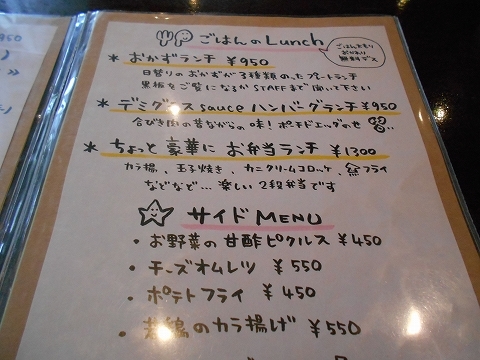 ごはんのLunch
ごはん大もり
おかわり
無料デス
* おかずランチ ¥950
日替りのおかずが3種類のったプレートランチ
黒板をご覧になるかSTAFFまで聞いて下さい
* デミグラスsauceハンバーグランチ ¥950
合びき肉の昔ながらの味!ポーチドエッグのせ
* ちょっと豪華にお弁当ランチ ¥1300
カラ揚、玉子焼き、カニクリームコロッケ、魚フライ
などなど…楽しい2段弁当です
サイドMENU
・お野菜の甘酢ピクルス ¥450
・チーズオムレツ ¥550
・ポテトフライ ¥450
・若鶏のカラ揚げ ¥550